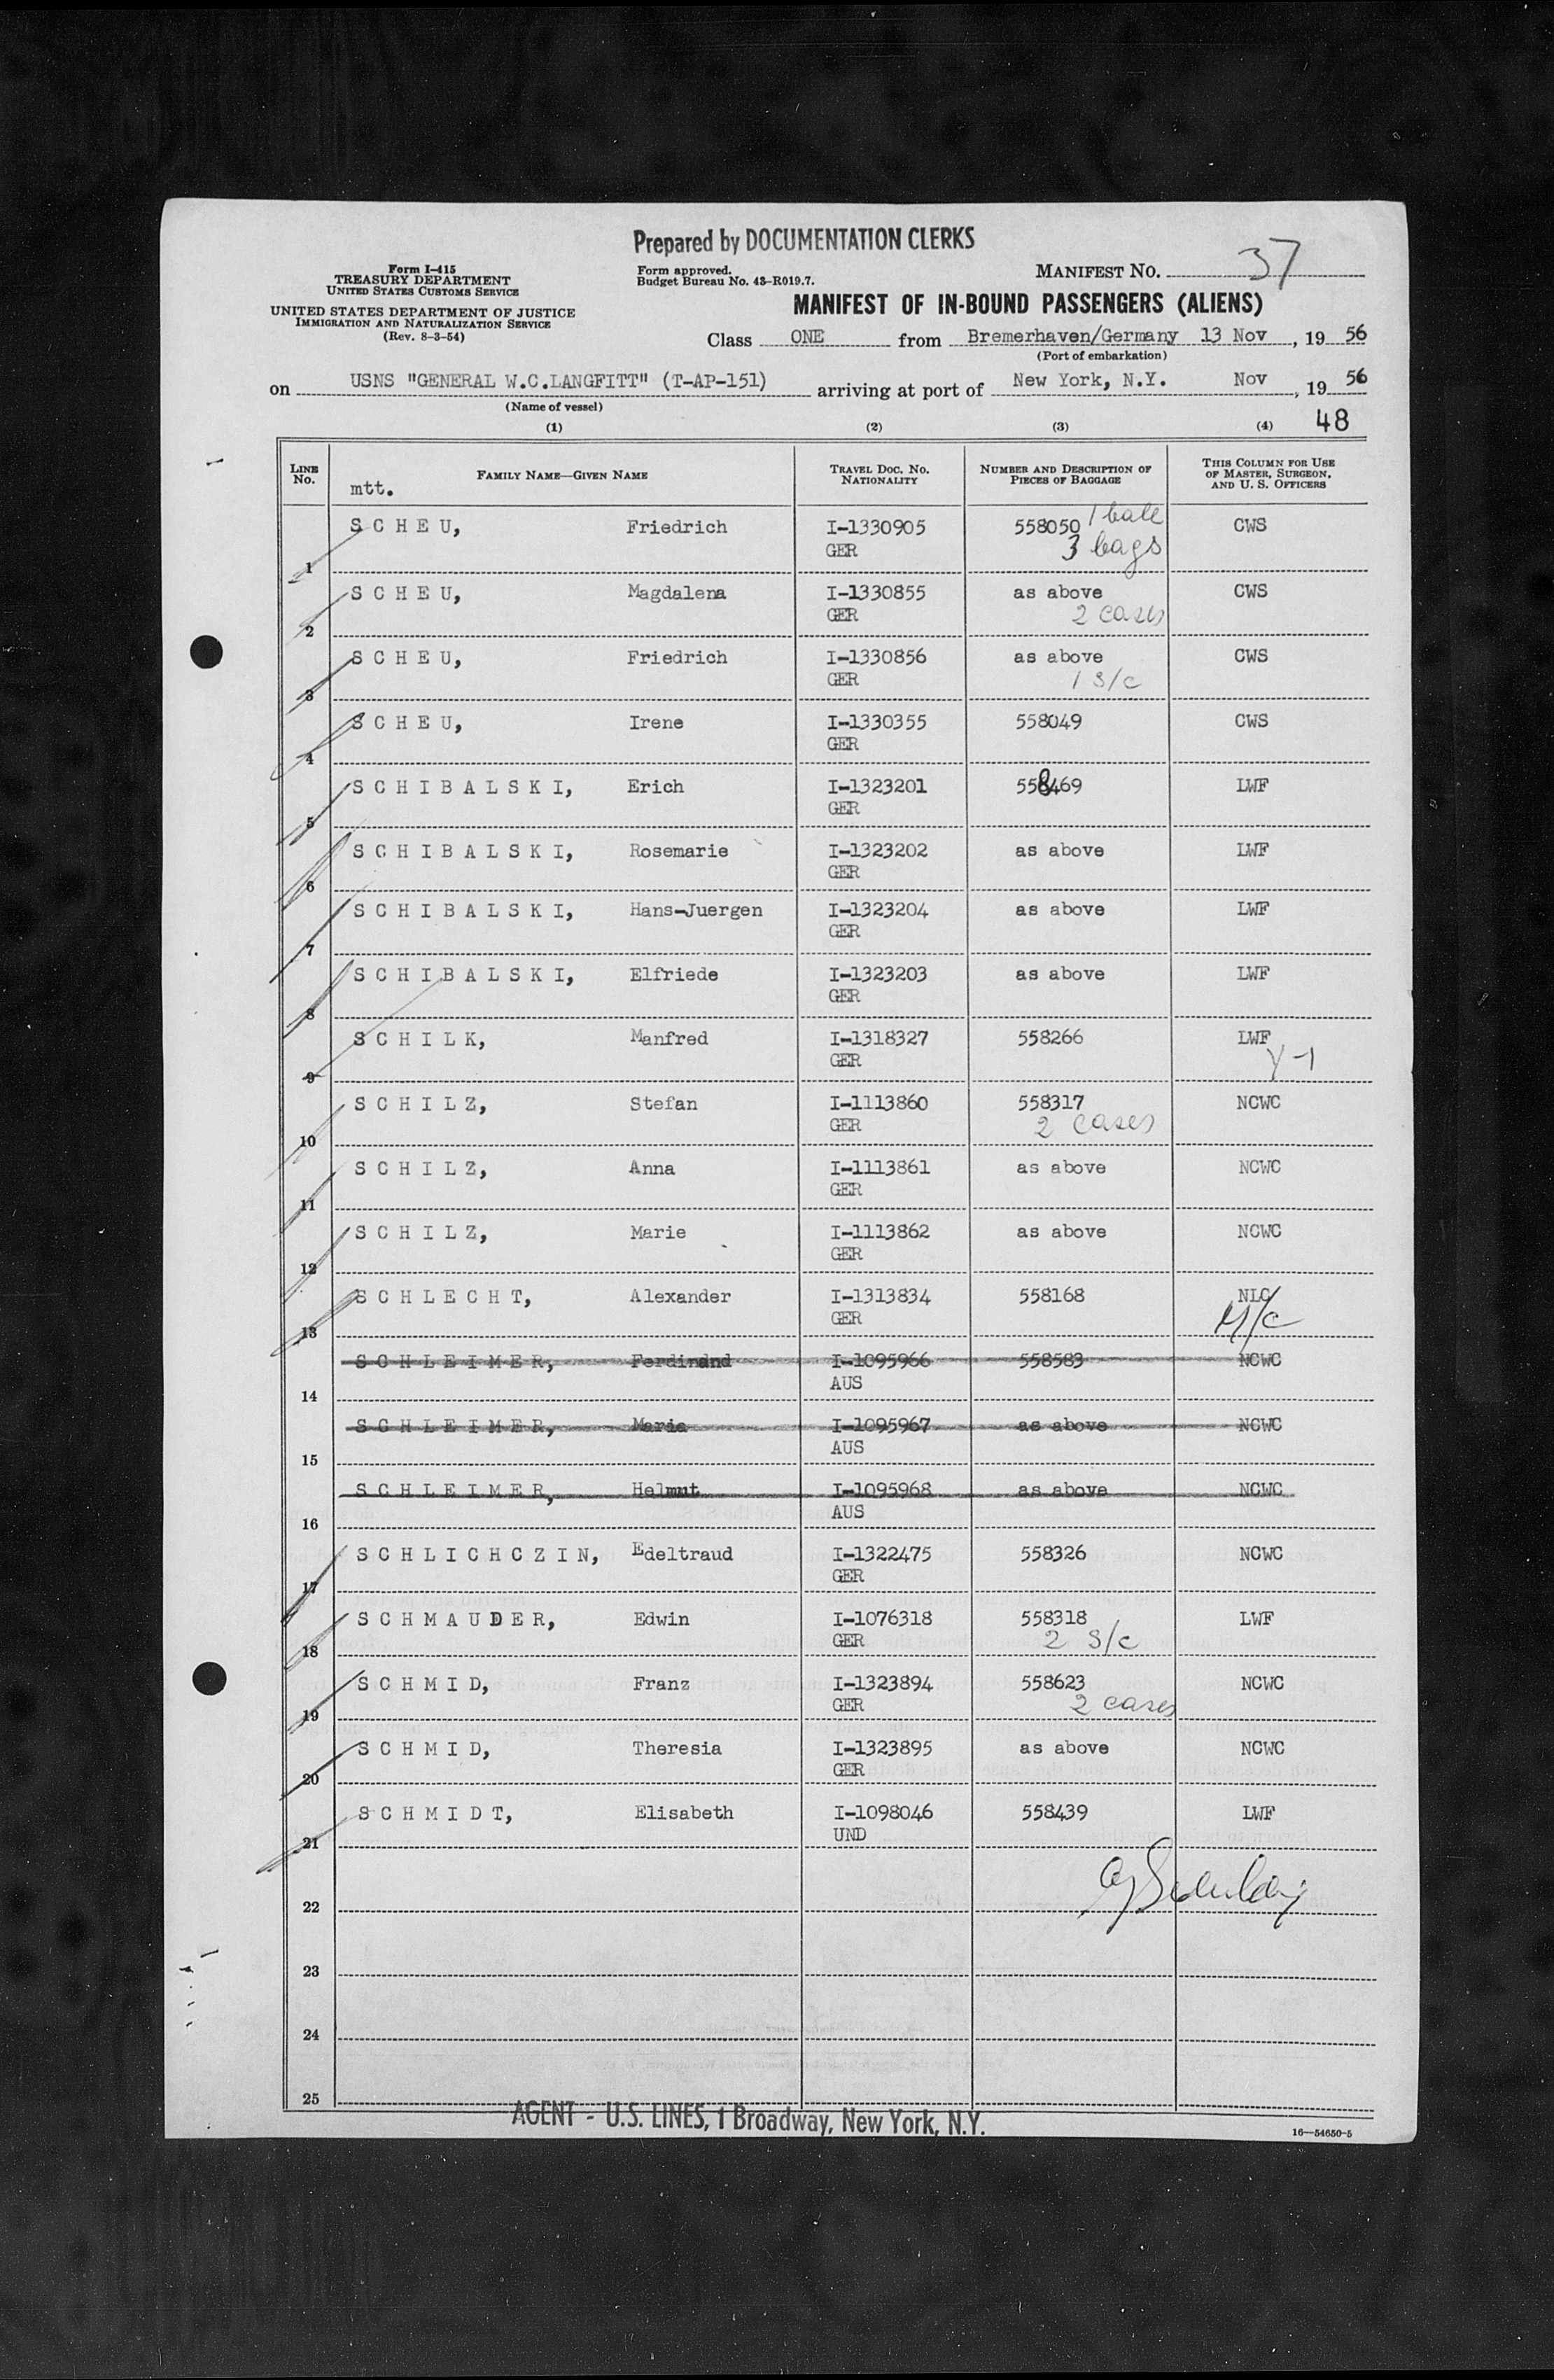 Prepared by DOCUMENTATION CLERKS
Form I-415
TREASURY DEPARTMENT
UNITED STATES CUSTOMS SERVICE
UNITED STATES DEPARTMENT OF JUSTICE
IMMIGRATION AND NATURALIZATION SERVICE
(Rev. 8-3-54)
Form approved.
Budget Bureau No. 43-R019.7.
MANIFEST NO. 37
MANIFEST OF IN-BOUND PASSENGERS (ALIENS)
Class ONE from Bremerhaven/Germany 13 Nov, 19 56
(Port of embarkation)
on USNS "GENERAL W.C.LANGFITT" (T-AP-151) arriving at port of New York, N.Y. Nov, 19 56
(Name of vessel)
(1) (2) (3) (4) 48
LINE NO. FAMILY NAME—GIVEN NAME TRAVEL DOC. NO. NATIONALITY NUMBER AND DESCRIPTION OF PIECES OF BAGGAGE THIS COLUMN FOR USE OF MASTER, SURGEON, AND U. S. OFFICERS
mtt.
1 S C H E U, Friedrich I-1330905 GER 558050 1 bale 3 bags CWS
2 S C H E U, Magdalena I-1330855 GER as above 2 cases CWS
3 S C H E U, Friedrich I-1330856 GER as above 1 s/c CWS
4 S C H E U, Irene I-1330355 GER 558049 CWS
5 S C H I B A L S K I, Erich I-1323201 GER 558469 LWF
6 S C H I B A L S K I, Rosemarie I-1323202 GER as above LWF
7 S C H I B A L S K I, Hans-Juergen I-1323204 GER as above LWF
8 S C H I B A L S K I, Elfriede I-1323203 GER as above LWF
9 S C H I L K, Manfred I-1318327 GER 558266 LWF Y-1
10 S C H I L Z, Stefan I-1113860 GER 558317 2 cases NCWC
11 S C H I L Z, Anna I-1113861 GER as above NCWC
12 S C H I L Z, Marie I-1113862 GER as above NCWC
13 S C H L E C H T, Alexander I-1313834 GER 558168 NLC M/c
14 S C H L E I M E R, Ferdinand I-1095966 AUS 558583 NCWC
15 S C H L E I M E R, Maria I-1095967 AUS as above NCWC
16 S C H L E I M E R, Helmut I-1095968 AUS as above NCWC
17 S C H L I C H C Z I N, Edeltraud I-1322475 GER 558326 NCWC
18 S C H M A U D E R, Edwin I-1076318 GER 558318 2 s/c LWF
19 S C H M I D, Franz I-1323894 GER 558623 2 cases NCWC
20 S C H M I D, Theresia I-1323895 GER as above NCWC
21 S C H M I D T, Elisabeth I-1098046 UND 558439 LWF
22
23
24
25
AGENT - U.S. LINES, 1 Broadway, New York, N.Y.
16—54650-5